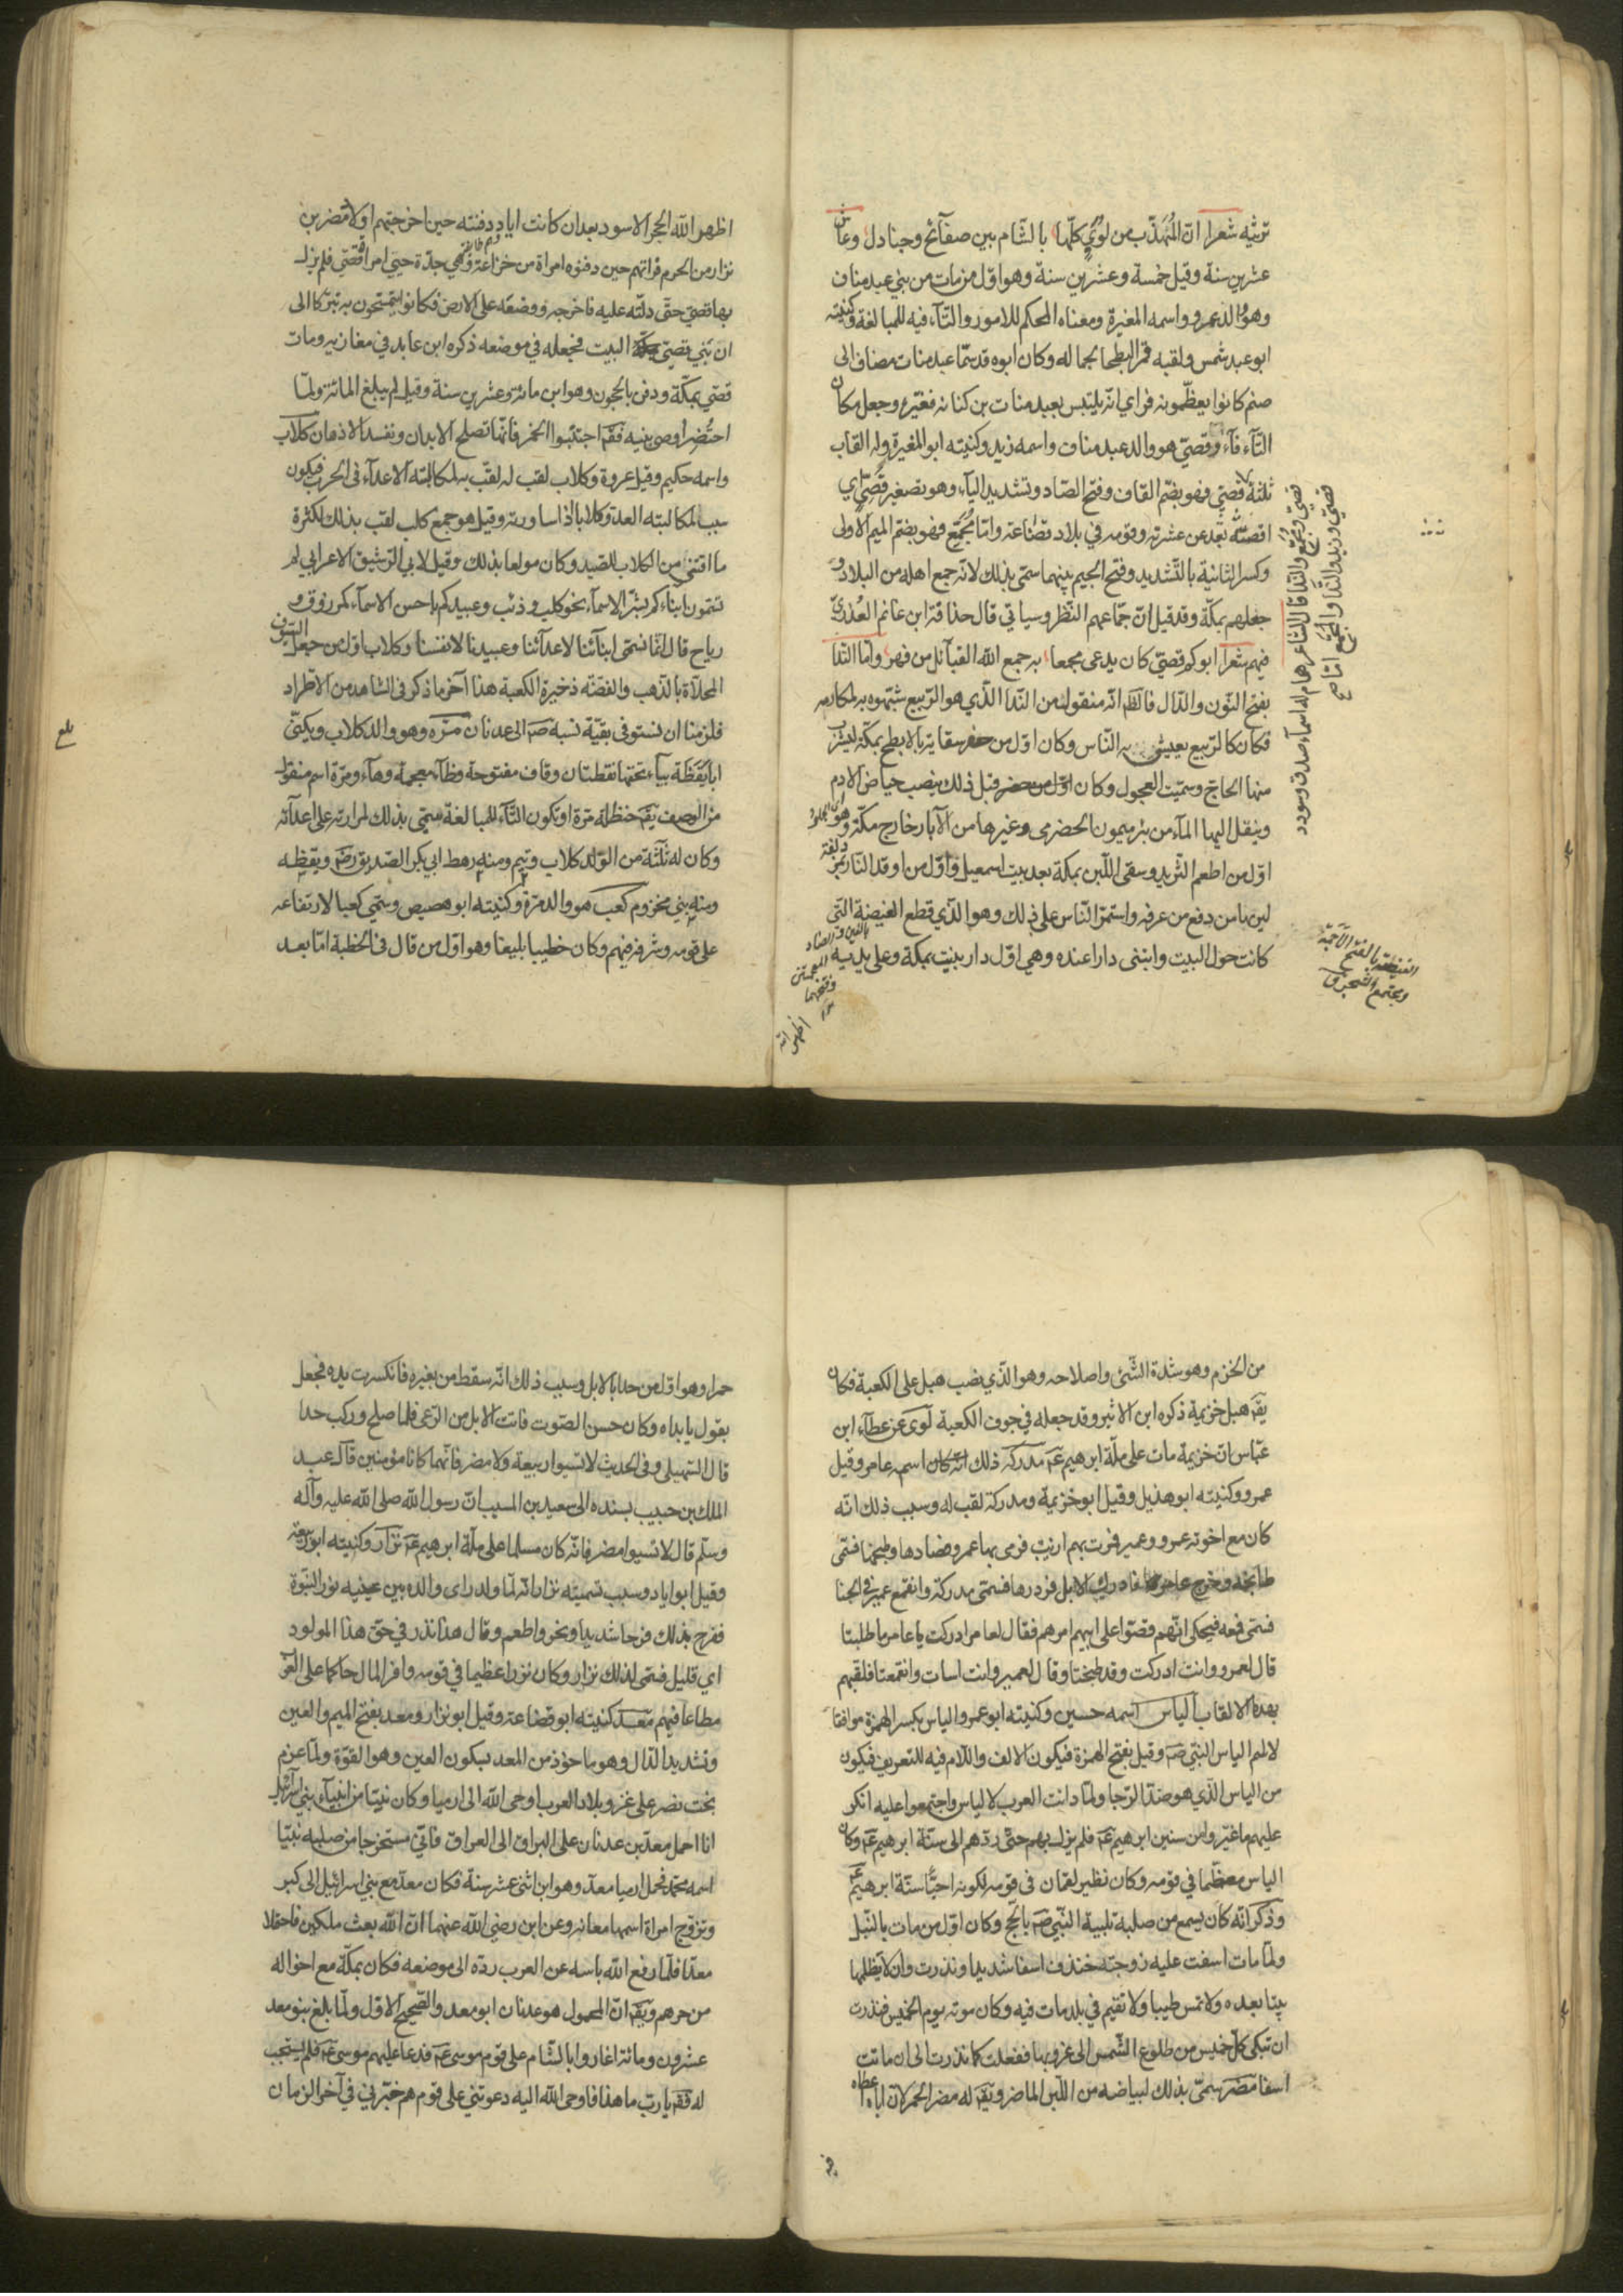 ترثيه شعرا ان المهذب من لؤي كلها بالشام بين صفآئح وجنادل وعاش
عشرين سنة وقيل خمسة وعشرين سنة وهو اول من مات من بني عبد مناف
وهو والد عمرو واسمه المغيرة ومعناه المحكم للامور والتآء فيه للمبالغة وكنيته
ابو عبد شمس ولقبه قمر البطحا لجماله وكان ابوه قد سمّا عبد منات مضاف الى
صنم كانوا يعظّمونه فراي انه يلتبس بعبد منات بن كنانه فغيّره وجعل مكان
التآء فآء وقصيّ هو والد عبد مناف واسمه زيد وكنيته ابو المغيرة وله القاب
ثلثة قصيّ فهو بضم القاف وفتح الصّاد وتشديد اليآء وهو تصغير قصيّ اي
اقصيّ بعد عن عشيرته وقومه في بلاد قضاعة وامّا مُجمّع فهو بضم الميم الاولى
وكسر الثانية بالتشديد وفتح الجيم بينهما سمّى بذلك لانه جمع اهله من البلاد و
جعلهم بمكّة وقد قيل ان جمّاعهم النّظر وسياتي قال حذافة ابن غانم العُذريّ
فيهم شعرا ابوكم قصيّ كان يدعى مجمعا به جمع الله القبآئل من فهر وامّا النّدا
بفتح النّون والدّال فالظ انّه منقول من النّدا الّذي هو الرّبيع شبّهوه به لمكارمه
فكان كالرّبيع يعيش به النّاس وكان اوّل من حفر سقاية بالابطح بمكّة ليشرب
منها الحاجّ وسمّيت العجول وكان اوّل من حضر قبل ذلك ينصب حياض الادم
وينقل اليها المآء من بئر ميمون الحضرمى وغيرها من الآبار خارج مكّة وهو
اوّل من اطعم الثّريد وسقى اللّبن بمكّة بعد بيت اسمعيل واوّل من اوقد النّار بمزدلفة
ليرى يامن دفع من عرفه واستمرّ النّاس على ذلك وهو الّذي قطع الغيضة التي
كانت حول البيت وابتنى دارا عنده وهي اوّل دار بنيت بمكة وعلى يديه
قصيّ وزيد والنّدا والمُجمّع
قصيّ ومُجمّع والنّدا قال الشاعر هام له اسمآء صدق وسودد
الغيضة بالفتح الاجمة
ومجتمع الشجر ق
بالغين والضاد
المعجمتين
وفتحهما
اظهر الله
اظهر الله الحجر الاسود بعد ان كانت اياد دفنته حين اخرجتهم اولاد مضر بن
نزار من الحرم فراتهم حين دفنوه امراة من خزاعة وهي جدّة حبّي امراة قصّي فلم يزل
بها قصيّ حتّى دلّته عليه فاخرجه ووضعه على الارض فكانوا يتمسّحون به تبرّكا الى
ان بَني قصيّ البيت فجعله في موضعه ذكره ابن عابد في مغازيه ومات
قصّي بمكّة ودفن بالحجون وهو ابن مائة وعشرين سنة وقيل لم يبلغ المائة ولمّا
احتُضر اوصى بنيه فقا اجتنبوا الخمر فانّها تصلح الابدان وتفسد الاذهان كلاب
واسمه حكيم وقيل عروة وكلاب لقب له لقّب به لمكالبته الاعدآء فى الحرب فيكون
سبب لمكالبته العدو كلابا اذا ساورته وقيل هو جمع كلب لقب بذلك لكثرة
ما اقتنى من الكلاب للصّيد وكان مولعا بذلك وقيل لابي الرّشيق الاعرابي لم
تسمّون ابنآءكم بشرّ الاسمآء نحو كلب وذئب وعبيدكم باحسن الاسمآء كمرزوق و
رباح قال انما نسمّى ابنآئنا لاعدآئنا وعبيدنا لانفسنا وكلاب اوّل من جعل السّيوف
المحلّاة بالذّهب والفضّة ذخيرة الكعبة هذا آخر ما ذكر فى الشاهد من الاطراد
فلزمنا ان نستوفى بقيّة نسبه صَ الى عدنان مرّه وهو والد كلاب ويكنّى
ابا يَقَظَة بيآء تحتها نقطتان وقاف مفتوحة وظآء معجمة وهآء ومرّة اسم منقول
من الوصف يقا حنظلة مرّة او تكون التّآء للمبالغة سمّى بذلك لمرارته على اعدآئه
وكان له ثلثة من الولد كلاب وتيم ومنه رهط ابي بكر الصّديق رضَ ويقظه
ومنه بني مخزوم كعب هو والد مرّة وكنيته ابو هصيص وسمّي كعبا لارتفاعه
على قومه وشرفه فيهم وكان خطيبا بليغا وهو اوّل من قال فى الخطبة امّا بعد
بلغ
من الخزم وهو شدة الشّئ واصلاحه وهو الّذي نصب هبل على الكعبة فكان
يقا هبل خزيمة ذكره ابن الاثير وقد جعله في جوف الكعبة لوى عن عطآء ابن
عبّاس ان خزيمة مات على ملّة ابرهيم عَ مدركه ذلك انّه كان اسمه عامر وقيل
عمرو وكنيته ابو هذيل وقيل ابو خزيمة ومدركة لقب له وسبب ذلك انّه
كان مع اخوته عمرو وعمير فمرت بهم ارنب فرمى بها عمرو فصادها وطبخها فسمّى
طابخه وخرج عامر فادرك الابل فردّها فسمّى مدركة وانقمع عمير في الخبا
فسمّى قمعه فيحكى انّهم قصّوا على ابيهم امرهم فقال لعامر ادركت يا عامر ما طلبتا
قال لعمرو وانت ادركت وقد طبختا وقال لعمير وانت اسات وانقمعتا فلقبهم
بهذه الالقاب الياس اسمه حسين وكنيته ابو عمرو والياس بكسر الهمزة موافقا
لاسم الياس النّبيّ صَ وقيل بفتح الهمزة فيكون الالف واللّام فيه للتعريف فيكون
من الياس الّذي هو ضدّ الرّجا ولمّا دانت العرب لالياس واجتمعوا عليه انكر
عليهم ما غيّروا من سنين ابرهيم عَ فلم يزل بهم حتّى ردّهم الى سنّة ابرهيم عَ وكان
الياس معظّما في قومه وكان نظير لقمان فى قومه لكونه احيّا سنّة ابرهيم عَ
وذكر انّه كان يسمع من صلبه تلبية النّبيّ صَ بالحج وكان اوّل من مات بالسّل
ولمّا مات اسفت عليه زوجته خندف اسفا شديدا ونذرت وان لا يظلّها
بيتا بعده ولا تمسّ طيبا ولا تقيم في بلد مات فيه وكان موته يوم الخميس فنذرت
ان تبكى كلّ خميس من طلوع الشّمس الى غروبها ففعلت كما نذرت الى ان ماتت
اسفا مضر سمّى بذلك لبياضه من اللّبن الماضر ويقا له مضر الحمرا لان اباه اعطاه
حمرا وهو اوّل من حدا بالابل وسبب ذلك انّه سقط من بعيره فانكسرت يده فجعل
يقول يا يداه وكان حسن الصّوت فاتت الابل من الرّعى فلما صلح وركب حدا
قال السّهيلى وفى الحديث لا تسبوا ربيعة ولا مضر فانّهما كانا مؤمنين قال عبد
الملك بن حبيب بسنده الى سعيد بن المسيب انّ رسول الله صلى الله عليه وآله
وسلّم قال لا تسبوا مضر فانّه كان مسلما على ملّة ابرهيم عَ نزار وكنيته ابو ربيعة
وقيل ابو اياد وسبب تسميته نزار انّه لمّا ولد راى والده بين عينيه نور النبوّة
ففرح بذلك فرحا شديدا ونحر واطعم وقال هذا نذر في حقّ هذا المولود
اي قليل فسمّى لذلك نزار وكان نزرا عظيما في قومه وافر المال حاكما على العرب
مطاعا فيهم معد كنيته ابو قضاعة وقيل ابو نزار ومعد بفتح الميم والعين
وتشديد الدّال وهو ماخوذ من المعد بسكون العين وهو القوّة ولمّا عزم
بخت نصر على غزو بلاد العرب اوحى الله الى ارميا وكان نبيّا من انبيآء بني اسرآئيل
انا احمل معد بن عدنان على البراق الى العراق فاتى مستخرجا من صلبه نبيّا
اسمه محمّد فحمل ارميا معدّ وهو ابن اثنى عشر سنة فكان معدّ مع بني اسرائيل الى كبر
وتزوج امراة اسمها معانه وعن ابن رضى الله عنهما ان الله بعث ملكين فاحملا
معدّا فلمّا رفع الله باسه عن العرب ردّه الى موضعه فكان بمكّة مع اخواله
من جرهم ويقا انّ المحمول هو عدنان ابو معد والصّحيح الاوّل ولمّا بلغ بنو معد
عشرون ومائة اغاروا بالشّام على قوم موسى عَ فدعا عليهم موسى عَ فلم يستجب
له فقا يا رب ما هذا فاوحى الله اليه دعوتني على قوم هم خيرتي في آخر الزمان